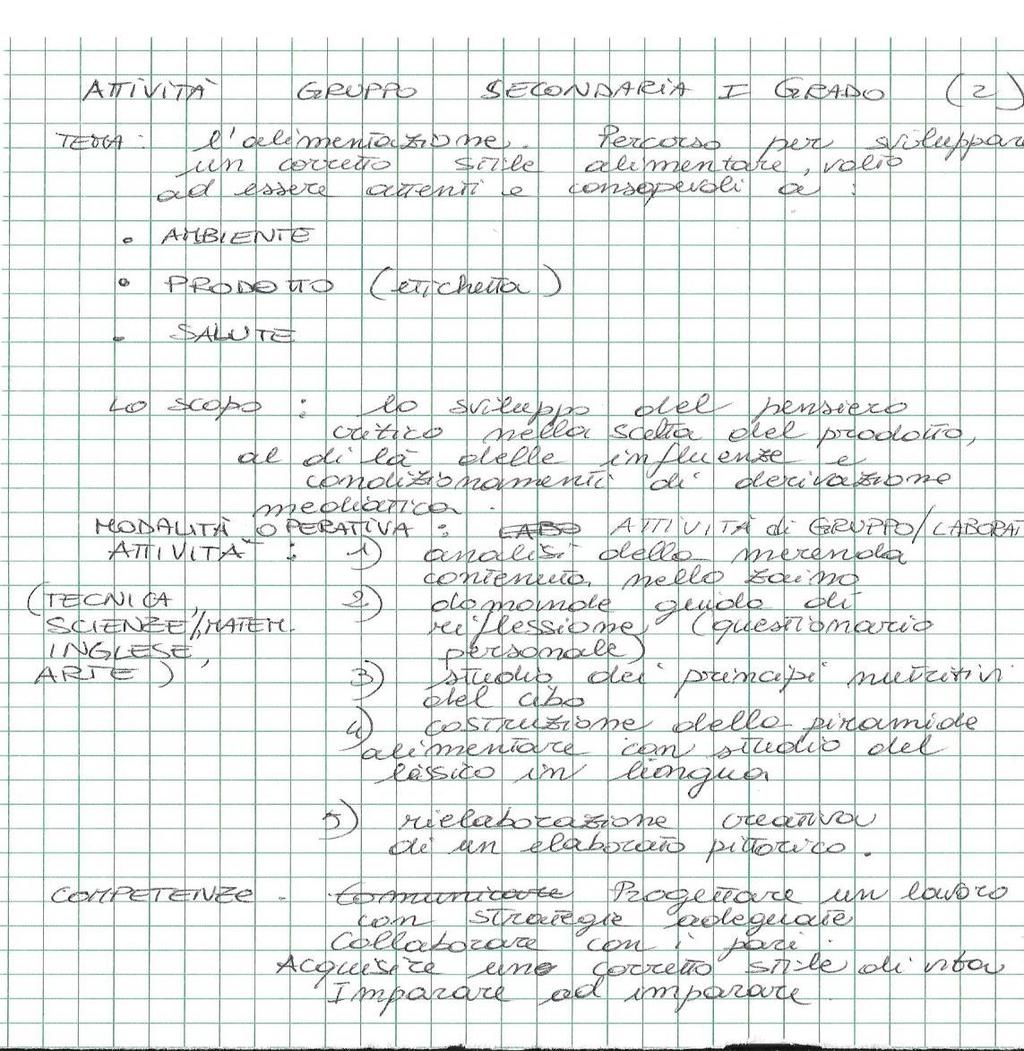 ATTIVITÀ GRUPPO SECONDARIA I GRADO (2)
TEMA: l'alimentazione. Percorso per sviluppar
un corretto stile alimentare, volto
ad essere attenti e consapevoli a:
• AMBIENTE
• PRODOTTO (etichetta)
- SALUTE
LO SCOPO: lo sviluppo del pensiero
critico nella scelta del prodotto,
al di là delle influenze e
condizionamenti di derivazione
mediatica.
MODALITÀ OPERATIVA: LABO ATTIVITÀ di GRUPPO/LABORAT
ATTIVITÀ: 1) analisi della merenda
contenuta nello zaino
(TECNICA, 2) domande guida di
SCIENZE/MATEM. riflessione (questionario
INGLESE, personale)
ARTE) 3) studio dei principi nutritivi
del cibo
4) costruzione della piramide
alimentare con studio del
lessico in lingua
5) rielaborazione creativa
di un elaborato pittorico.
COMPETENZE - Comunicare Progettare un lavoro
con strategie adeguate
Collaborare con i pari.
Acquisire uno corretto stile di vita
Imparare ad imparare